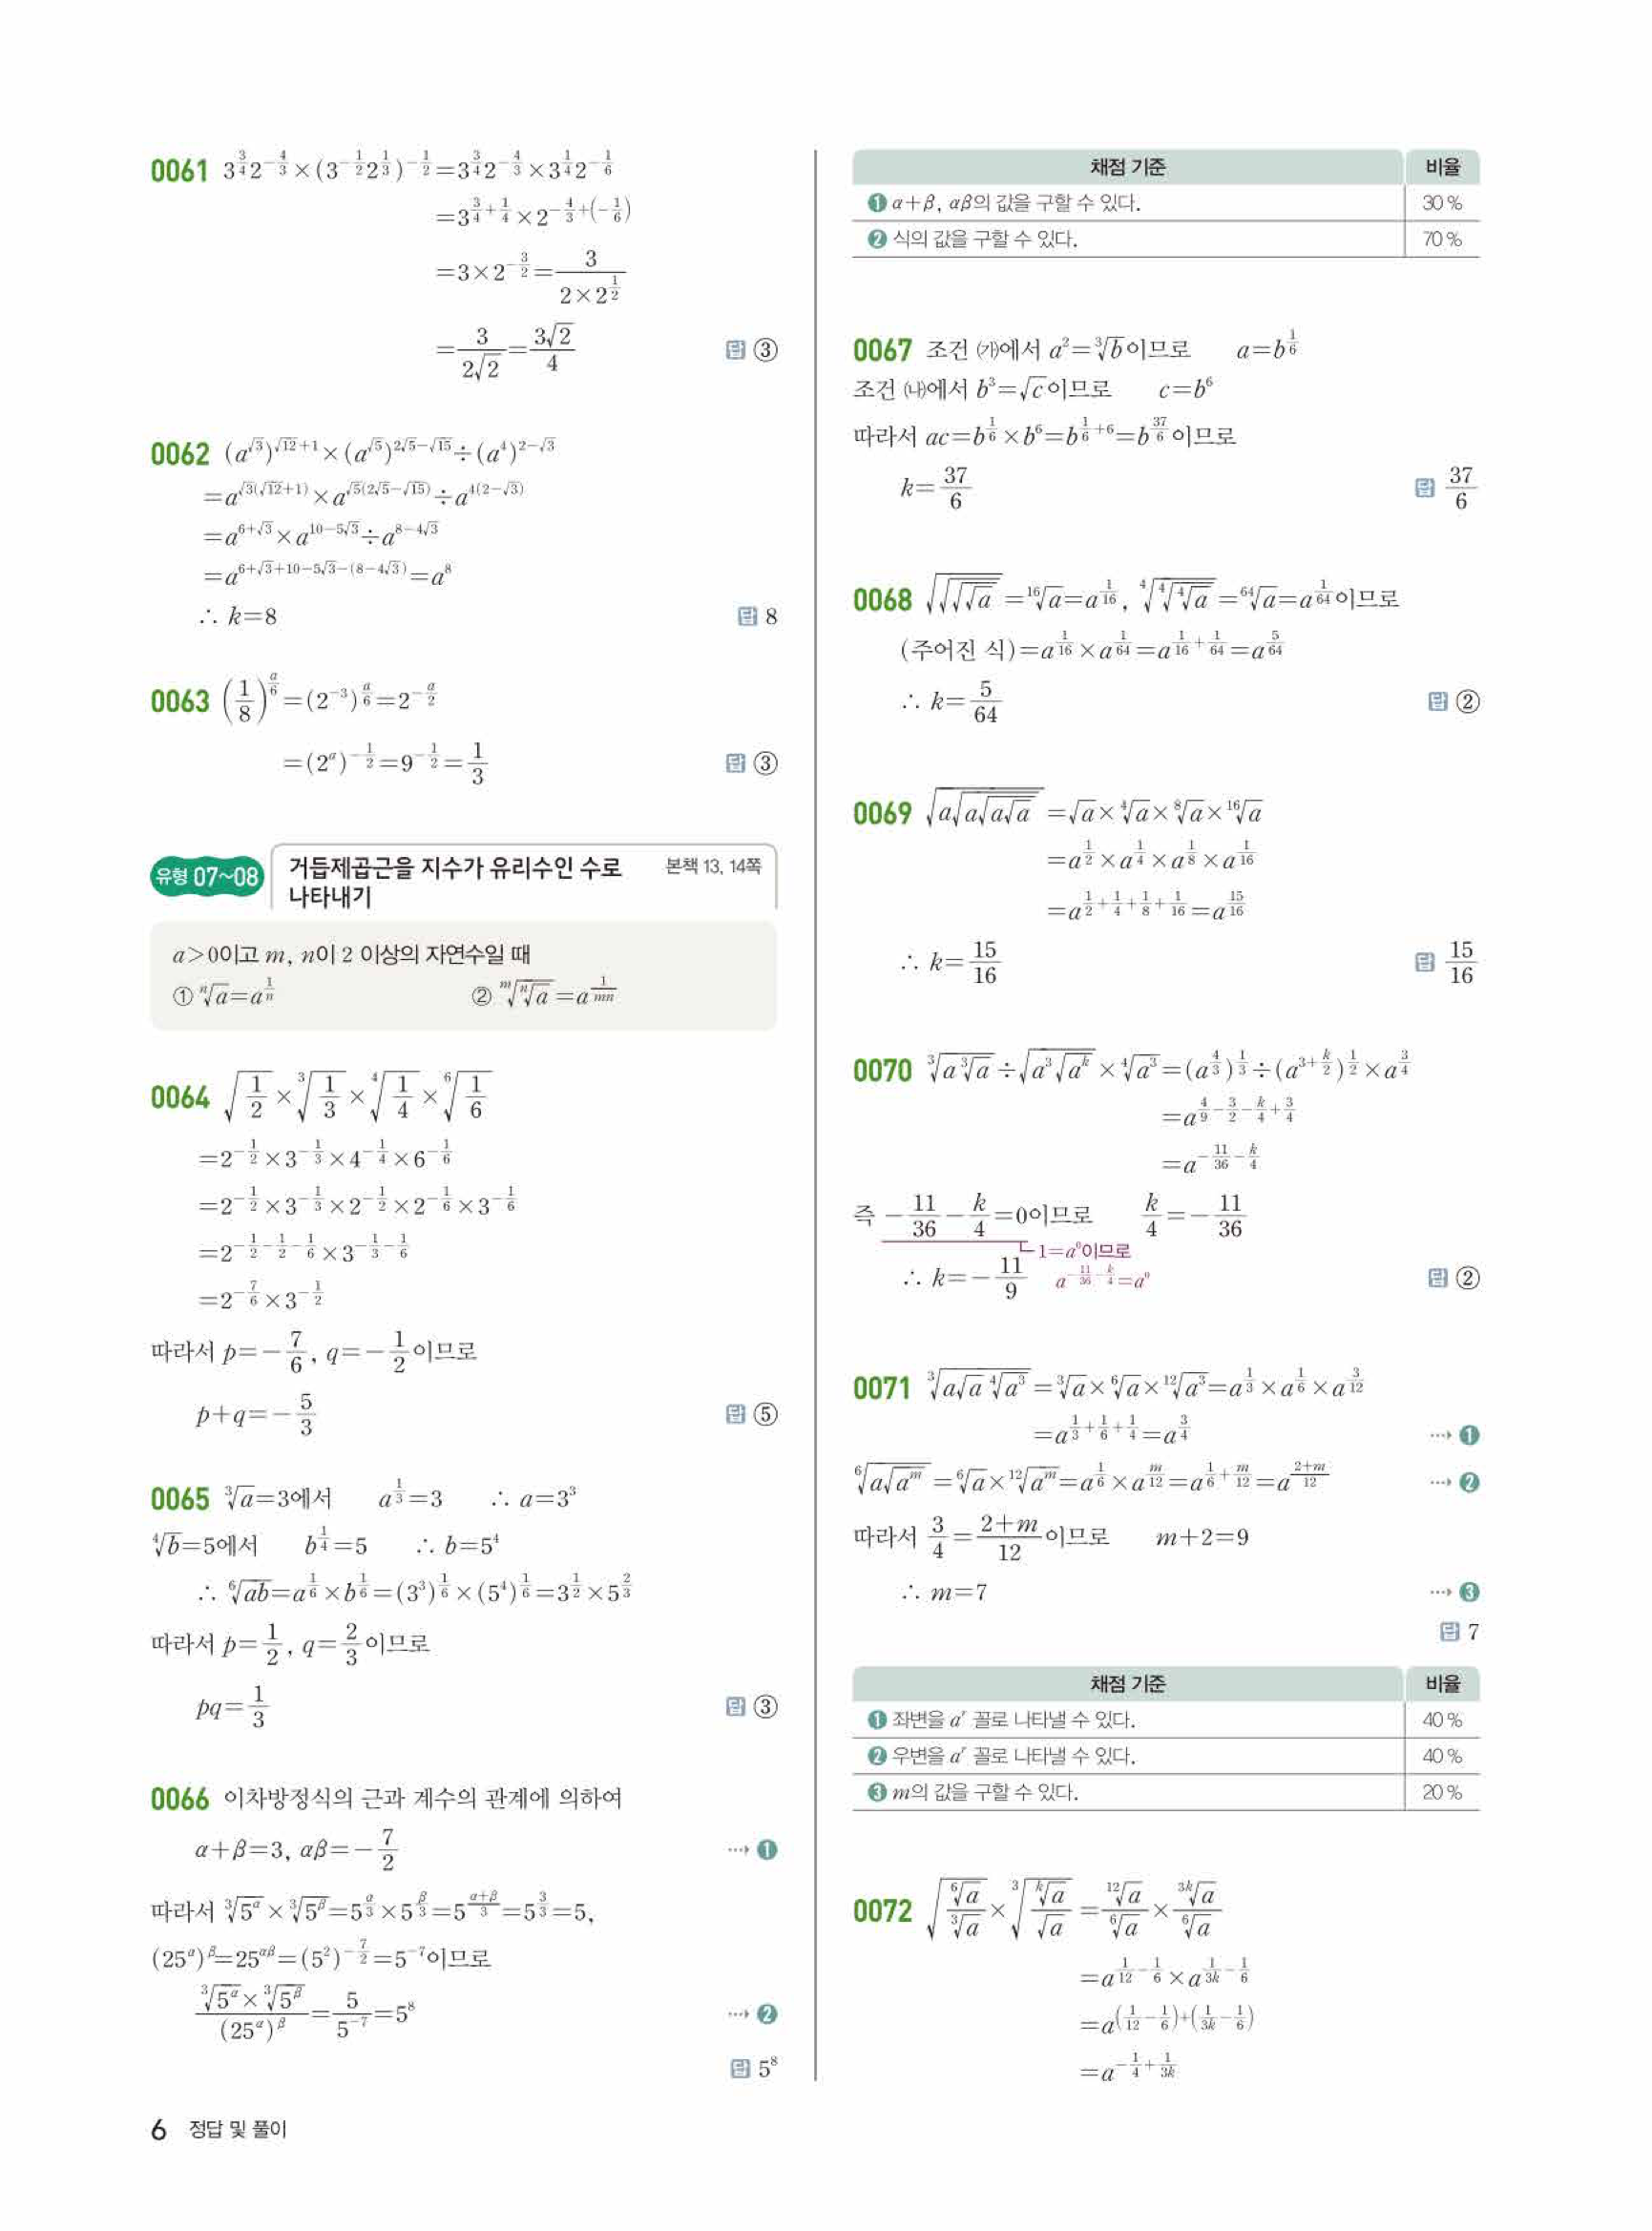 0061 3^{3/4}2^{-4/3}×(3^{-1/2}2^{1/3})^{-1/2}=3^{3/4}2^{-4/3}×3^{1/4}2^{-1/6}
=3^{3/4+1/4}×2^{-4/3+(-1/6)}
=3×2^{-3/2}=3/(2×2^{1/2})
=3/(2√2)=3√2/4 답 ③
0062 (a^{√3})^{√12+1}×(a^{√5})^{2√5-√15}÷(a^4)^{2-√3}
=a^{√3(√12+1)}×a^{√5(2√5-√15)}÷a^{4(2-√3)}
=a^{6+√3}×a^{10-5√3}÷a^{8-4√3}
=a^{6+√3+10-5√3-(8-4√3)}=a^8
∴ k=8 답 8
0063 (1/8)^{a/6}=(2^{-3})^{a/6}=2^{-a/2}
=(2^a)^{-1/2}=9^{-1/2}=1/3 답 ③
유형 07~08 거듭제곱근을 지수가 유리수인 수로 본책 13, 14쪽
나타내기
a>0이고 m, n이 2 이상의 자연수일 때
① ⁿ√a=a^{1/n} ② ᵐ√(ⁿ√a)=a^{1/mn}
0064 √(1/2)×³√(1/3)×⁴√(1/4)×⁶√(1/6)
=2^{-1/2}×3^{-1/3}×4^{-1/4}×6^{-1/6}
=2^{-1/2}×3^{-1/3}×2^{-1/2}×2^{-1/6}×3^{-1/6}
=2^{-1/2-1/2-1/6}×3^{-1/3-1/6}
=2^{-7/6}×3^{-1/2}
따라서 p=-7/6, q=-1/2이므로
p+q=-5/3 답 ⑤
0065 ³√a=3에서 a^{1/3}=3 ∴ a=3³
⁴√b=5에서 b^{1/4}=5 ∴ b=5⁴
∴ ⁶√(ab)=a^{1/6}×b^{1/6}=(3³)^{1/6}×(5⁴)^{1/6}=3^{1/2}×5^{2/3}
따라서 p=1/2, q=2/3이므로
pq=1/3 답 ③
0066 이차방정식의 근과 계수의 관계에 의하여
α+β=3, αβ=-7/2 ···→ ❶
따라서 ³√(5^α)×³√(5^β)=5^{α/3}×5^{β/3}=5^{(α+β)/3}=5^{3/3}=5,
(25^α)^β=25^{αβ}=(5²)^{-7/2}=5^{-7}이므로
(³√(5^α)×³√(5^β))/(25^α)^β=5/5^{-7}=5⁸ ···→ ❷
답 5⁸
6 정답 및 풀이
채점 기준 비율
❶ α+β, αβ의 값을 구할 수 있다. 30 %
❷ 식의 값을 구할 수 있다. 70 %
0067 조건 ㈎에서 a²=³√b이므로 a=b^{1/6}
조건 ㈏에서 b³=√c이므로 c=b⁶
따라서 ac=b^{1/6}×b⁶=b^{1/6+6}=b^{37/6}이므로
k=37/6 답 37/6
0068 √(√(√(√a)))=¹⁶√a=a^{1/16}, ⁴√(⁴√(⁴√a))=⁶⁴√a=a^{1/64}이므로
(주어진 식)=a^{1/16}×a^{1/64}=a^{1/16+1/64}=a^{5/64}
∴ k=5/64 답 ②
0069 √(a√(a√(a√a)))=√a×⁴√a×⁸√a×¹⁶√a
=a^{1/2}×a^{1/4}×a^{1/8}×a^{1/16}
=a^{1/2+1/4+1/8+1/16}=a^{15/16}
∴ k=15/16 답 15/16
0070 ³√(a³√a)÷√(a³√(a^k))×⁴√(a³)=(a^{4/3})^{1/3}÷(a^{3+k/2})^{1/2}×a^{3/4}
=a^{4/9-3/2-k/4+3/4}
=a^{-11/36-k/4}
즉 -11/36-k/4=0이므로 k/4=-11/36
1=a⁰이므로
∴ k=-11/9 a^{-11/36-k/4}=a⁰ 답 ②
0071 ³√(a√a ⁴√(a³))=³√a×⁶√a×¹²√(a³)=a^{1/3}×a^{1/6}×a^{3/12}
=a^{1/3+1/6+1/4}=a^{3/4} ···→ ❶
⁶√(a√(a^m))=⁶√a×¹²√(a^m)=a^{1/6}×a^{m/12}=a^{1/6+m/12}=a^{(2+m)/12} ···→ ❷
따라서 3/4=(2+m)/12이므로 m+2=9
∴ m=7 ···→ ❸
답 7
채점 기준 비율
❶ 좌변을 a^r 꼴로 나타낼 수 있다. 40 %
❷ 우변을 a^r 꼴로 나타낼 수 있다. 40 %
❸ m의 값을 구할 수 있다. 20 %
0072 √(⁶√a/³√a)×³√(ᵏ√a/√a)=¹²√a/⁶√a×³ᵏ√a/⁶√a
=a^{1/12-1/6}×a^{1/3k-1/6}
=a^{(1/12-1/6)+(1/3k-1/6)}
=a^{-1/4+1/3k}